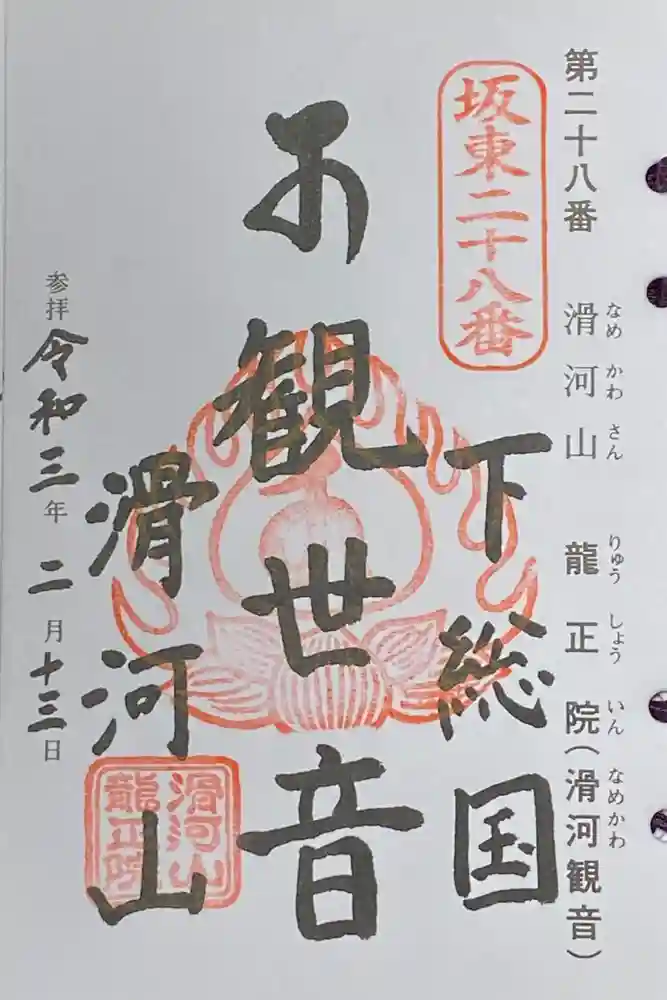 なめ かわ さん りゅう しょう いん なめかわ
第二十八番 滑河山 龍正院(滑河観音)
坂東二十八番
下総国
観世音
滑河山
滑河山
龍正院
参拝 令和三年二月十三日